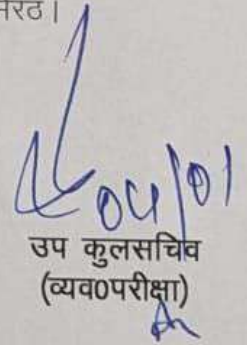 मेरठ।
04/01
उप कुलसचिव
(व्यव0परीक्षा)